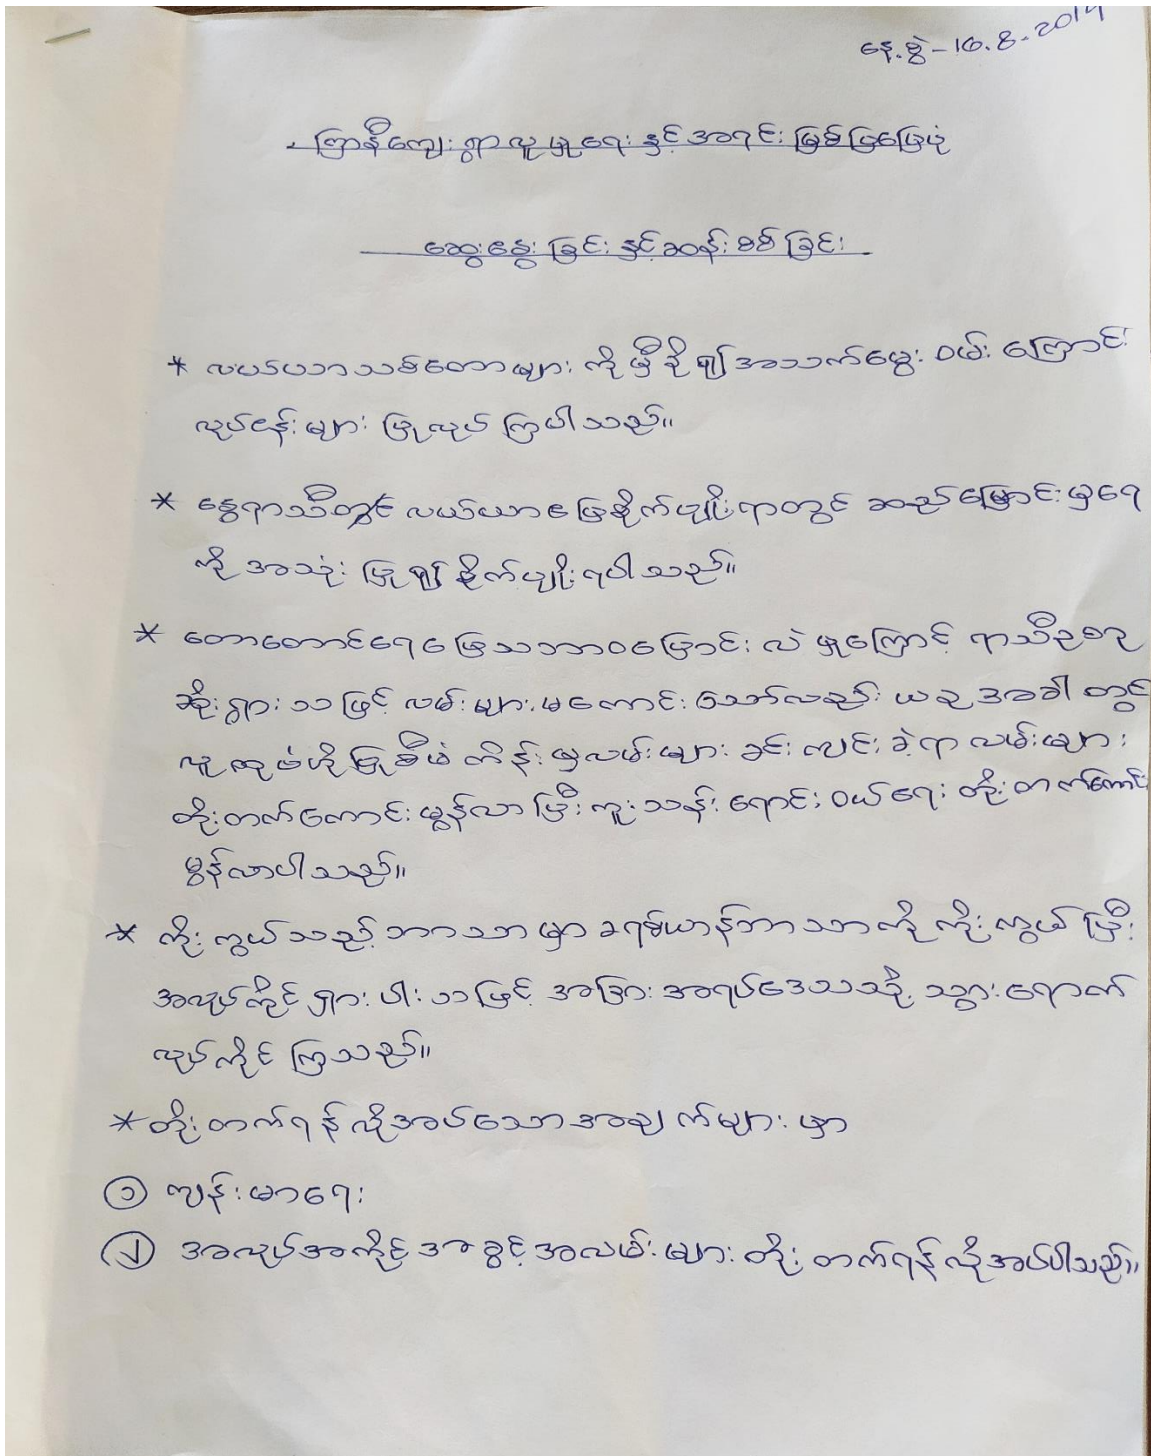 နေ့စွဲ - 16.8.2019
ကြာနီကျေးရွာလူမှုရေးနှင့်အရင်းမြစ်ပြမြေပုံ
ဆွေးနွေးခြင်းနှင့်ဆန်းစစ်ခြင်း
* လယ်ယာသစ်တောများကိုမှီခို၍အသက်မွေးဝမ်းကြောင်း
လုပ်ငန်းများ ပြုလုပ်ကြပါသည်။
* နွေရာသီတွင် လယ်ယာမြေစိုက်ပျိုးရာတွင် ဆည်မြောင်းမှရေ
ကို အသုံးပြု၍စိုက်ပျိုးရပါသည်။
* တောတောင်ရေမြေသဘာဝပြောင်းလဲမှုကြောင့် ရာသီဥတု
ဆိုးရွားသဖြင့် လမ်းများမကောင်းသော်လည်း ယခုအခါတွင်
လူထုဗဟိုပြုစီမံကိန်းမှလမ်းများ ခင်းကျင်းခဲ့ရာ လမ်းများ
တိုးတက်ကောင်းမွန်လာပြီး ကူးသန်းရောင်းဝယ်ရေး တိုးတက်ကောင်း
မွန်လာပါသည်။
* ကိုးကွယ်သည့်ဘာသာမှာ ခရစ်ယာန်ဘာသာကို ကိုးကွယ်ပြီး
အလုပ်ကိုင်ရှားပါးသဖြင့် အခြားအရပ်ဒေသသို့ သွားရောက်
လုပ်ကိုင်ကြသည်။
* တိုးတက်ရန်လိုအပ်သောအချက်များမှာ
၁ ကျန်းမာရေး
၂ အလုပ်အကိုင်အခွင့်အလမ်းများ တိုးတက်ရန်လိုအပ်ပါသည်။